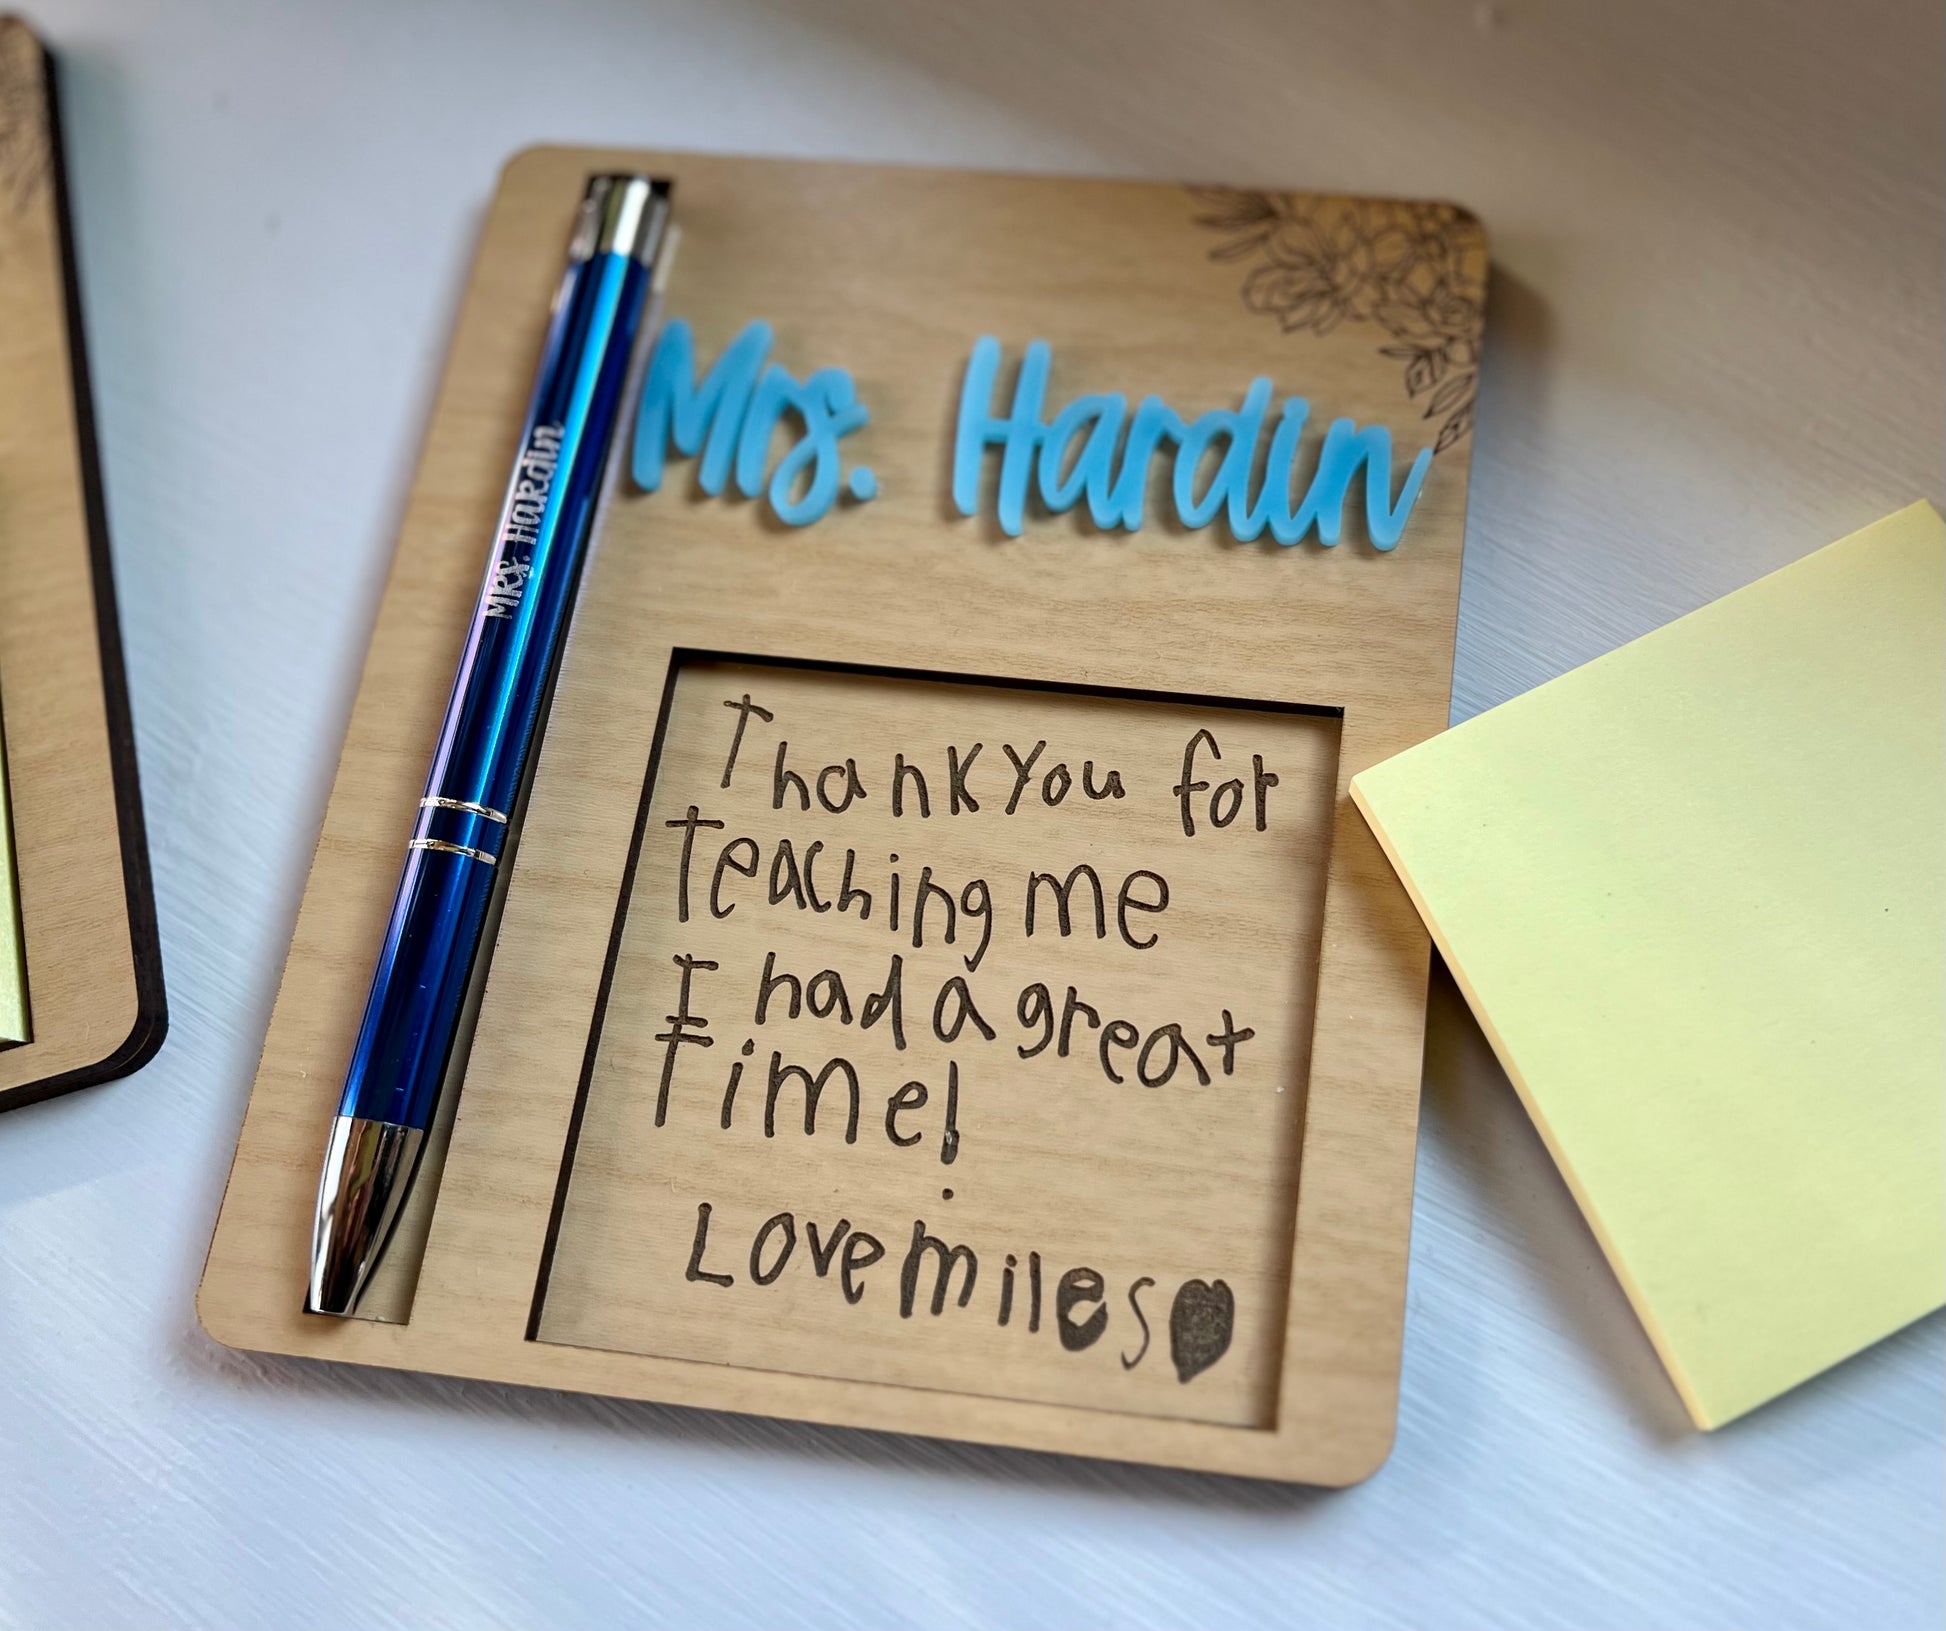 Mrs. Hardin
Mrs. Hardin
Thank You for
Teaching me
I had a great
Time!
Love miles